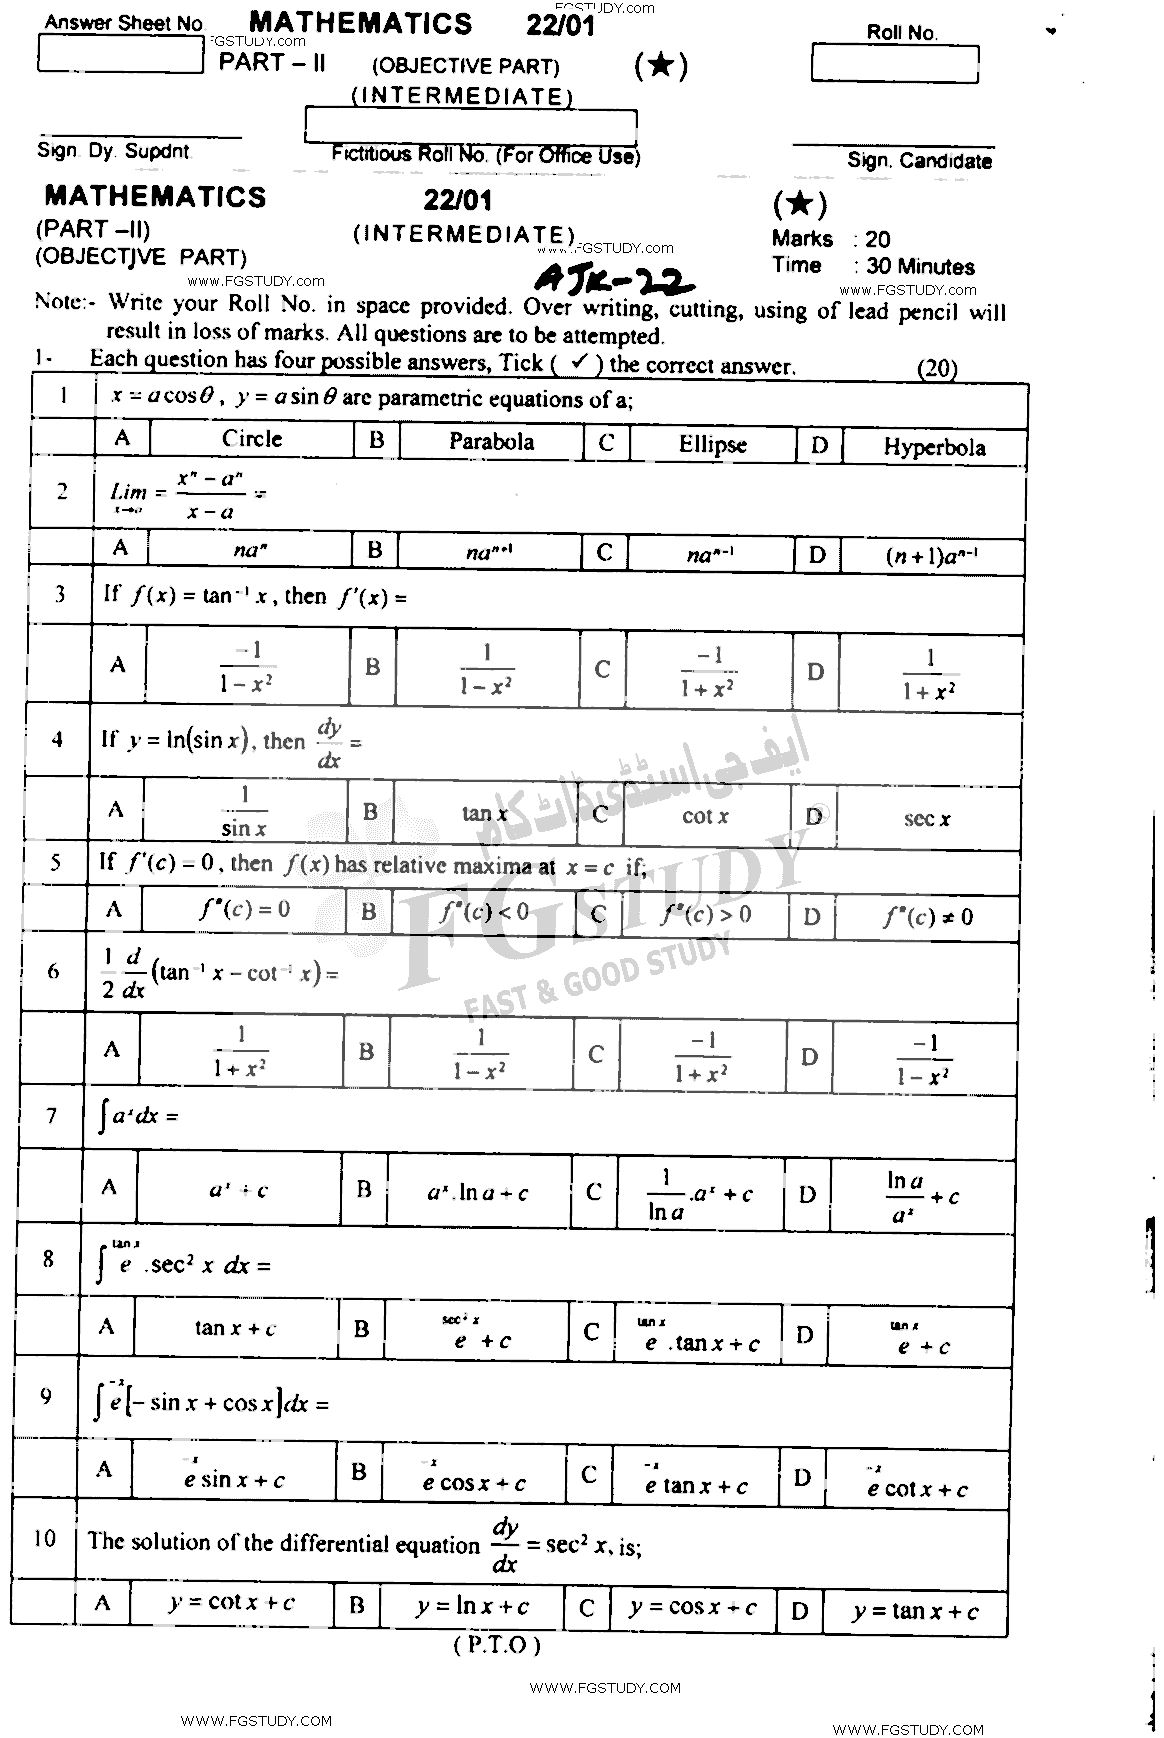 FGSTUDY.com
Answer Sheet No. MATHEMATICS 22/01 Roll No.
FGSTUDY.com
PART – II (OBJECTIVE PART) (★)
(INTERMEDIATE)
Sign. Dy. Supdnt. Fictitious Roll No. (For Office Use) Sign. Candidate
MATHEMATICS 22/01 (★)
(PART –II) (INTERMEDIATE) Marks : 20
(OBJECTIVE PART) www.FGSTUDY.com Time : 30 Minutes
www.FGSTUDY.com AJK-22 www.FGSTUDY.com
Note:- Write your Roll No. in space provided. Over writing, cutting, using of lead pencil will
result in loss of marks. All questions are to be attempted.
1- Each question has four possible answers, Tick ( ✓ ) the correct answer. (20)
1 x = a cos θ , y = a sin θ are parametric equations of a;
A Circle B Parabola C Ellipse D Hyperbola
2 Lim x→a = (xⁿ – aⁿ)/(x – a) =
A naⁿ B naⁿ⁺¹ C naⁿ⁻¹ D (n + 1)aⁿ⁻¹
3 If f(x) = tan⁻¹ x , then f′(x) =
A –1/(1 – x²) B 1/(1 – x²) C –1/(1 + x²) D 1/(1 + x²)
4 If y = ln(sin x), then dy/dx =
A 1/sin x B tan x C cot x D sec x
5 If f′(c) = 0 , then f(x) has relative maxima at x = c if;
A f″(c) = 0 B f″(c) < 0 C f″(c) > 0 D f″(c) ≠ 0
6 1/2 d/dx (tan⁻¹ x – cot⁻¹ x) =
A 1/(1 + x²) B 1/(1 – x²) C –1/(1 + x²) D –1/(1 – x²)
7 ∫ aˣ dx =
A aˣ + c B aˣ.ln a + c C 1/ln a .aˣ + c D ln a/aˣ + c
8 ∫ e^(tan x) .sec² x dx =
A tan x + c B e^(sec² x) + c C e^(tan x) .tan x + c D e^(tan x) + c
9 ∫ e^(-x) [– sin x + cos x] dx =
A e^(-x) sin x + c B e^(-x) cos x + c C e^(-x) tan x + c D e^(-x) cot x + c
10 The solution of the differential equation dy/dx = sec² x, is;
A y = cot x + c B y = ln x + c C y = cos x + c D y = tan x + c
( P.T.O )
ایف جی اسٹڈی ڈاٹ کام
FGSTUDY
FAST & GOOD STUDY
WWW.FGSTUDY.COM
WWW.FGSTUDY.COM
WWW.FGSTUDY.COM